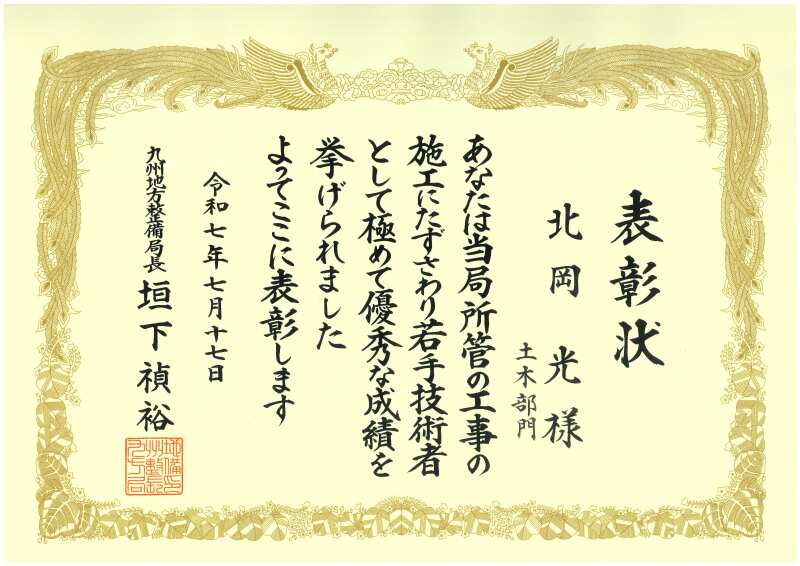 表彰状
北岡 光 様
土木部門
あなたは当局所管の工事の
施工にたずさわり若手技術者
として極めて優秀な成績を
挙げられました
よってここに表彰します
令和七年七月十七日
九州地方整備局長 垣下禎裕